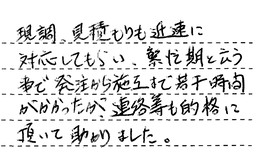 現調、見積もりも迅速に
対応してもらい、繁忙期と言う
事で発注から施工まで若干時間
がかかったが、連絡等も的確に
頂いて助かりました。